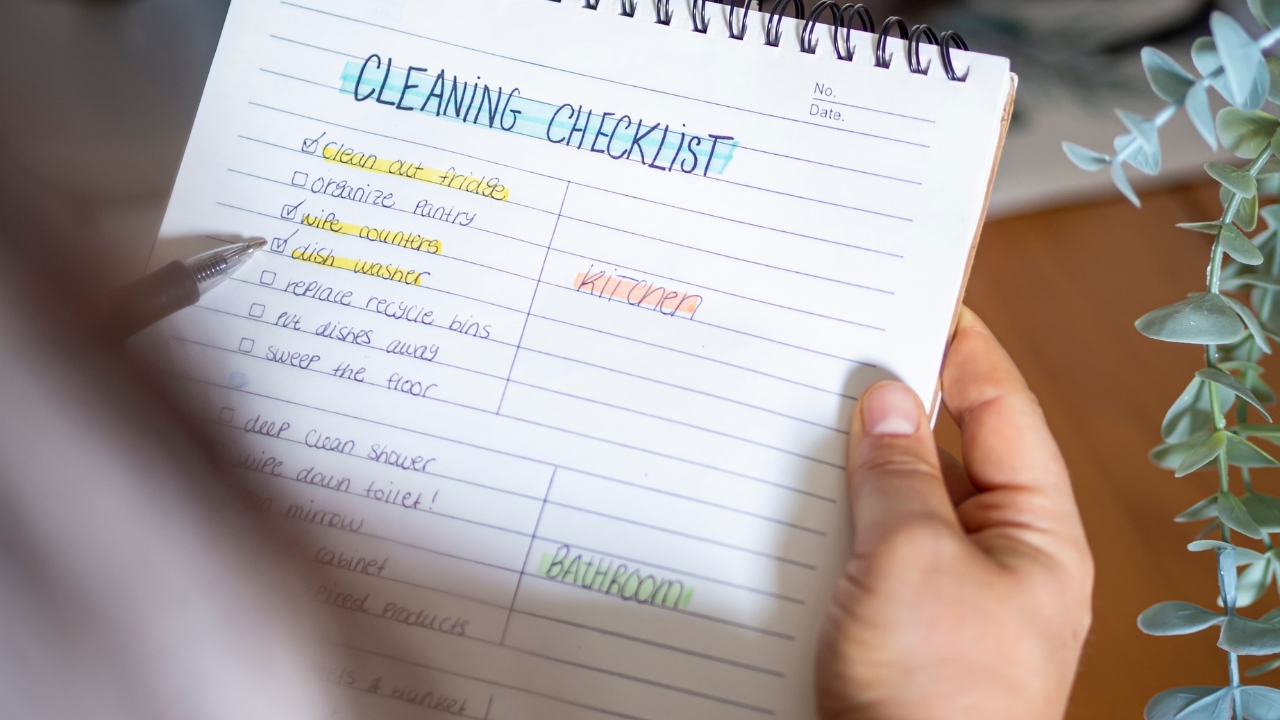 CLEANING CHECKLIST
No.
Date.
clean out fridge
organize pantry
wipe counters
dish washer
replace recycle bins
put dishes away
sweep the floor
kitchen
deep clean shower
wipe down toilet!
mirrow
cabinet
products
BATHROOM
& blanket